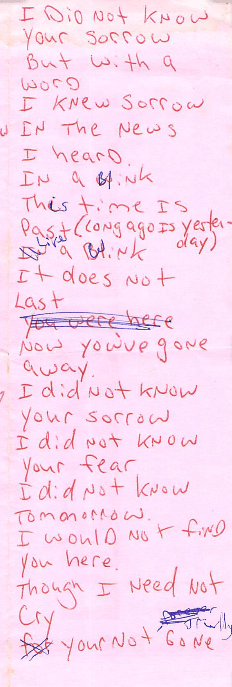 I DID NOT KNOW
Your Sorrow
But with a
Word
I KNEW Sorrow
IN The News
I heard.
IN a Blink
This time Is
Past (Long ago Is yester-
day)
Like a Blink
It does Not
Last
You were here
Now youve gone
away.
I did Not KNOW
your sorrow
I did Not KNOW
your fear
I did Not KNOW
Tomonorrow.
I WOULD NOT FIND
you here.
Though I Need Not
Cry
Truly
for your Not Gone